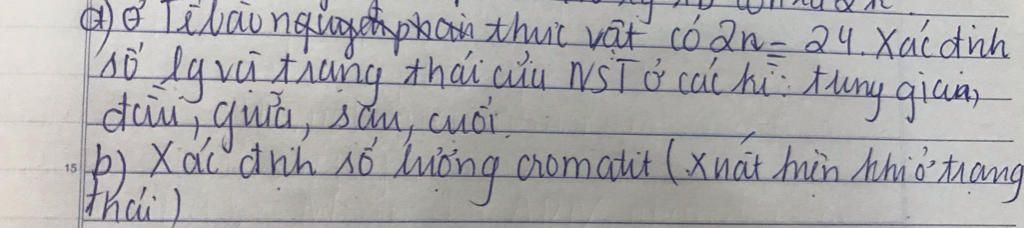 a) Ở Tế bào nguyên phân thực vật có 2n = 24. Xác định
số lg và trạng thái của NST ở các kì: trung gian,
đầu, giữa, sau, cuối.
15 b) Xác định số lượng cromatit (xuất hiện khi ở trạng
thái)